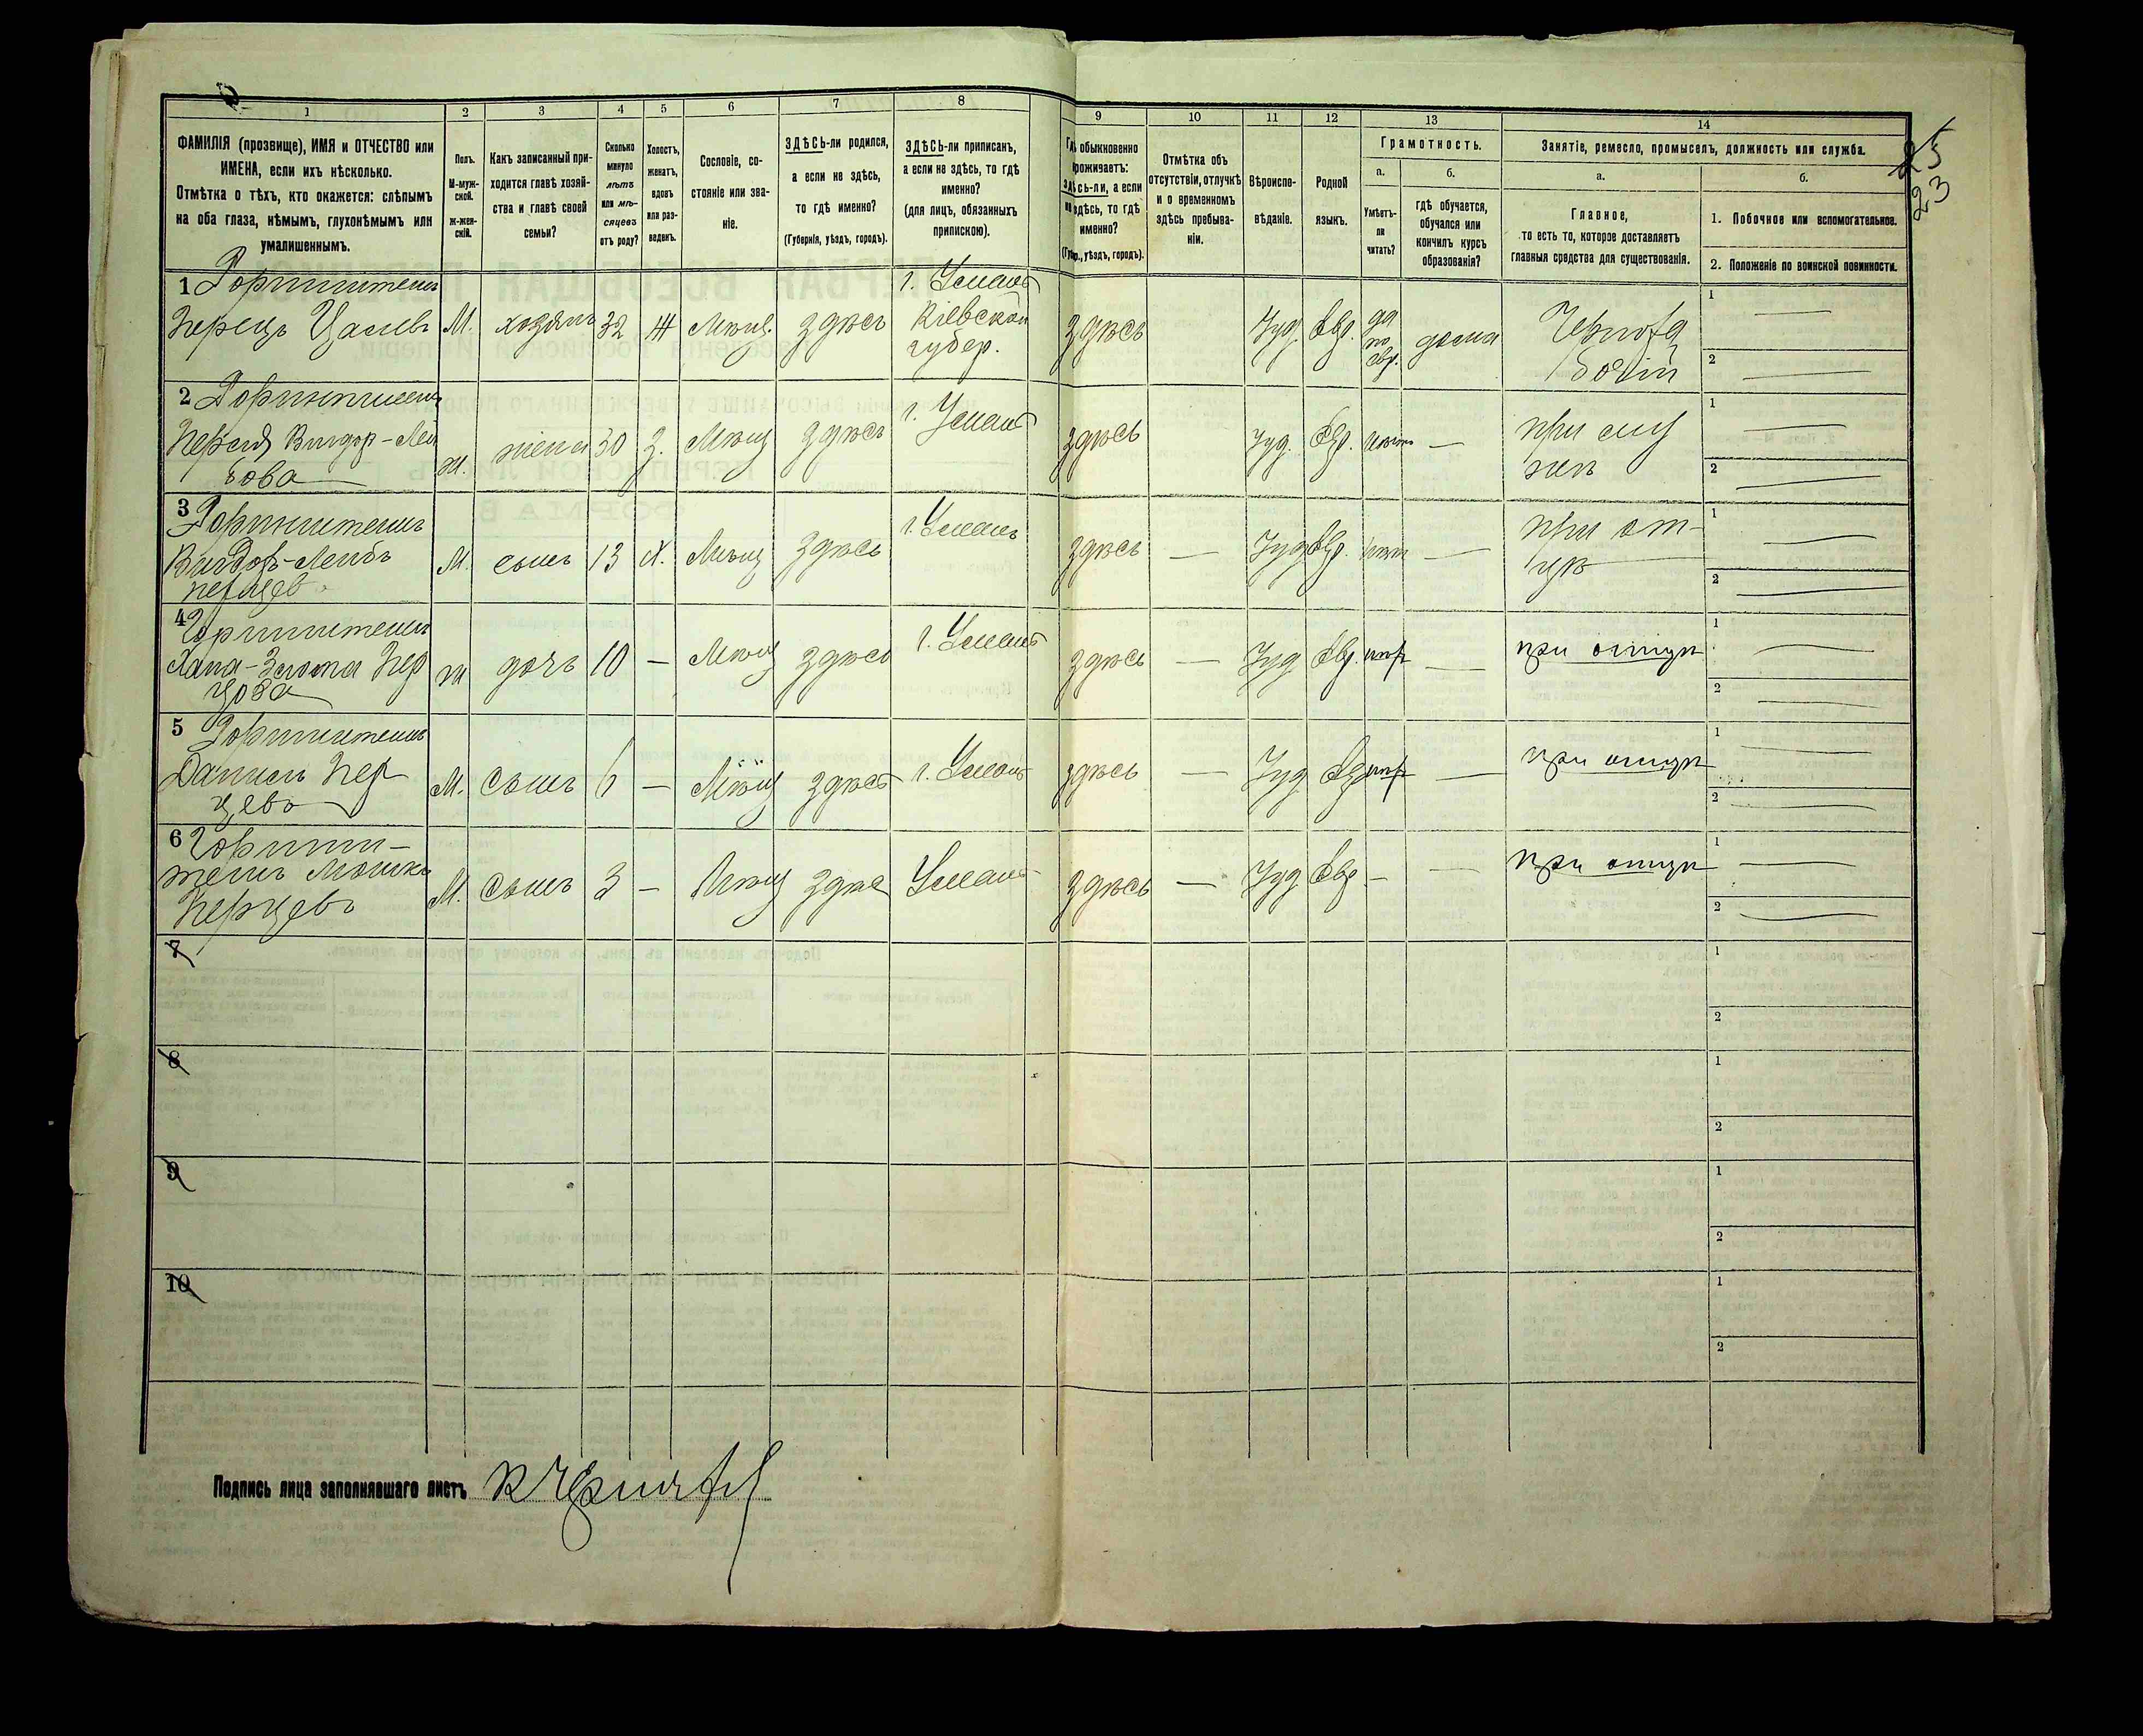 1
2
3
4
5
6
7
8
9
10
11
12
13
14
ФАМИЛІЯ (прозвище), ИМЯ и ОТЧЕСТВО или
ИМЕНА, если ихъ нѣсколько.
Отмѣтка о тѣхъ, кто окажется: слѣпымъ
на оба глаза, нѣмымъ, глухонѣмымъ или
умалишеннымъ.
Полъ.
М-муж-
ской.
Ж-жен-
скій.
Какъ записанный при-
ходится главѣ хозяй-
ства и главѣ своей
семьи?
Сколько
минуло
лѣтъ
или мѣ-
сяцевъ
отъ роду?
Холостъ,
женатъ,
вдовъ
или раз-
веденъ.
Сословіе, со-
стояніе или зва-
ніе.
ЗДѢСЬ-ли родился,
а если не здѣсь,
то гдѣ именно?
(Губернія, уѣздъ, городъ).
ЗДѢСЬ-ли приписанъ,
а если не здѣсь, то гдѣ
именно?
(для лицъ, обязанныхъ
припискою).
Гдѣ обыкновенно
проживаетъ:
здѣсь-ли, а если
не здѣсь, то гдѣ
именно?
(Губер., уѣздъ, городъ).
Отмѣтка объ
отсутствіи, отлучкѣ
и о временномъ
здѣсь пребыва-
ніи.
Вѣроиспо-
вѣданіе.
Родной
языкъ.
Грамотность.
а.
Умѣетъ-
ли
читать?
б.
гдѣ обучается,
обучался или
кончилъ курсъ
образованія?
Занятіе, ремесло, промыселъ, должность или служба.
а.
Главное,
то есть то, которое доставляетъ
главныя средства для существованія.
б.
1. Побочное или вспомогательное.
2. Положеніе по воинской повинности.
25
23
1
Перецъ
М. хозяинъ 32 Ж Мѣщ. здѣсь
г. Умань
Кіевской
губер.
здѣсь Іуд. Евр.
да
по
евр.
дома
Черно­ра
бочій
1
2
2
Лей
бова
ж. жена 30 З. Мѣщ здѣсь г. Умань здѣсь Іуд. Евр. нѣтъ —
при му
жѣ
1
2
3
Вигдоръ-Лейбъ
Перцевъ
М. сынъ 13 Х. Мѣщ здѣсь г. Умань здѣсь — Іуд Евр. нѣтъ —
при от-
цѣ
1
2
4
Хана-Злота Пер
цова
ж дочь 10 — Мѣщ здѣсь г. Умань здѣсь — Іуд Евр. нѣт — при отцѣ
1
2
5
Пер
цевъ
М. сынъ 6 — Мѣщ здѣсь г. Умань здѣсь — Іуд Евр нѣт — при отцѣ
1
2
6
Мошко
Перцевъ
М. сынъ 3 — Мѣщ здѣс Умань здѣсь — Іуд Евр — — при отцѣ
1
2
7
1
2
8
1
2
9
1
2
10
1
2
Подпись лица заполнявшаго листъ